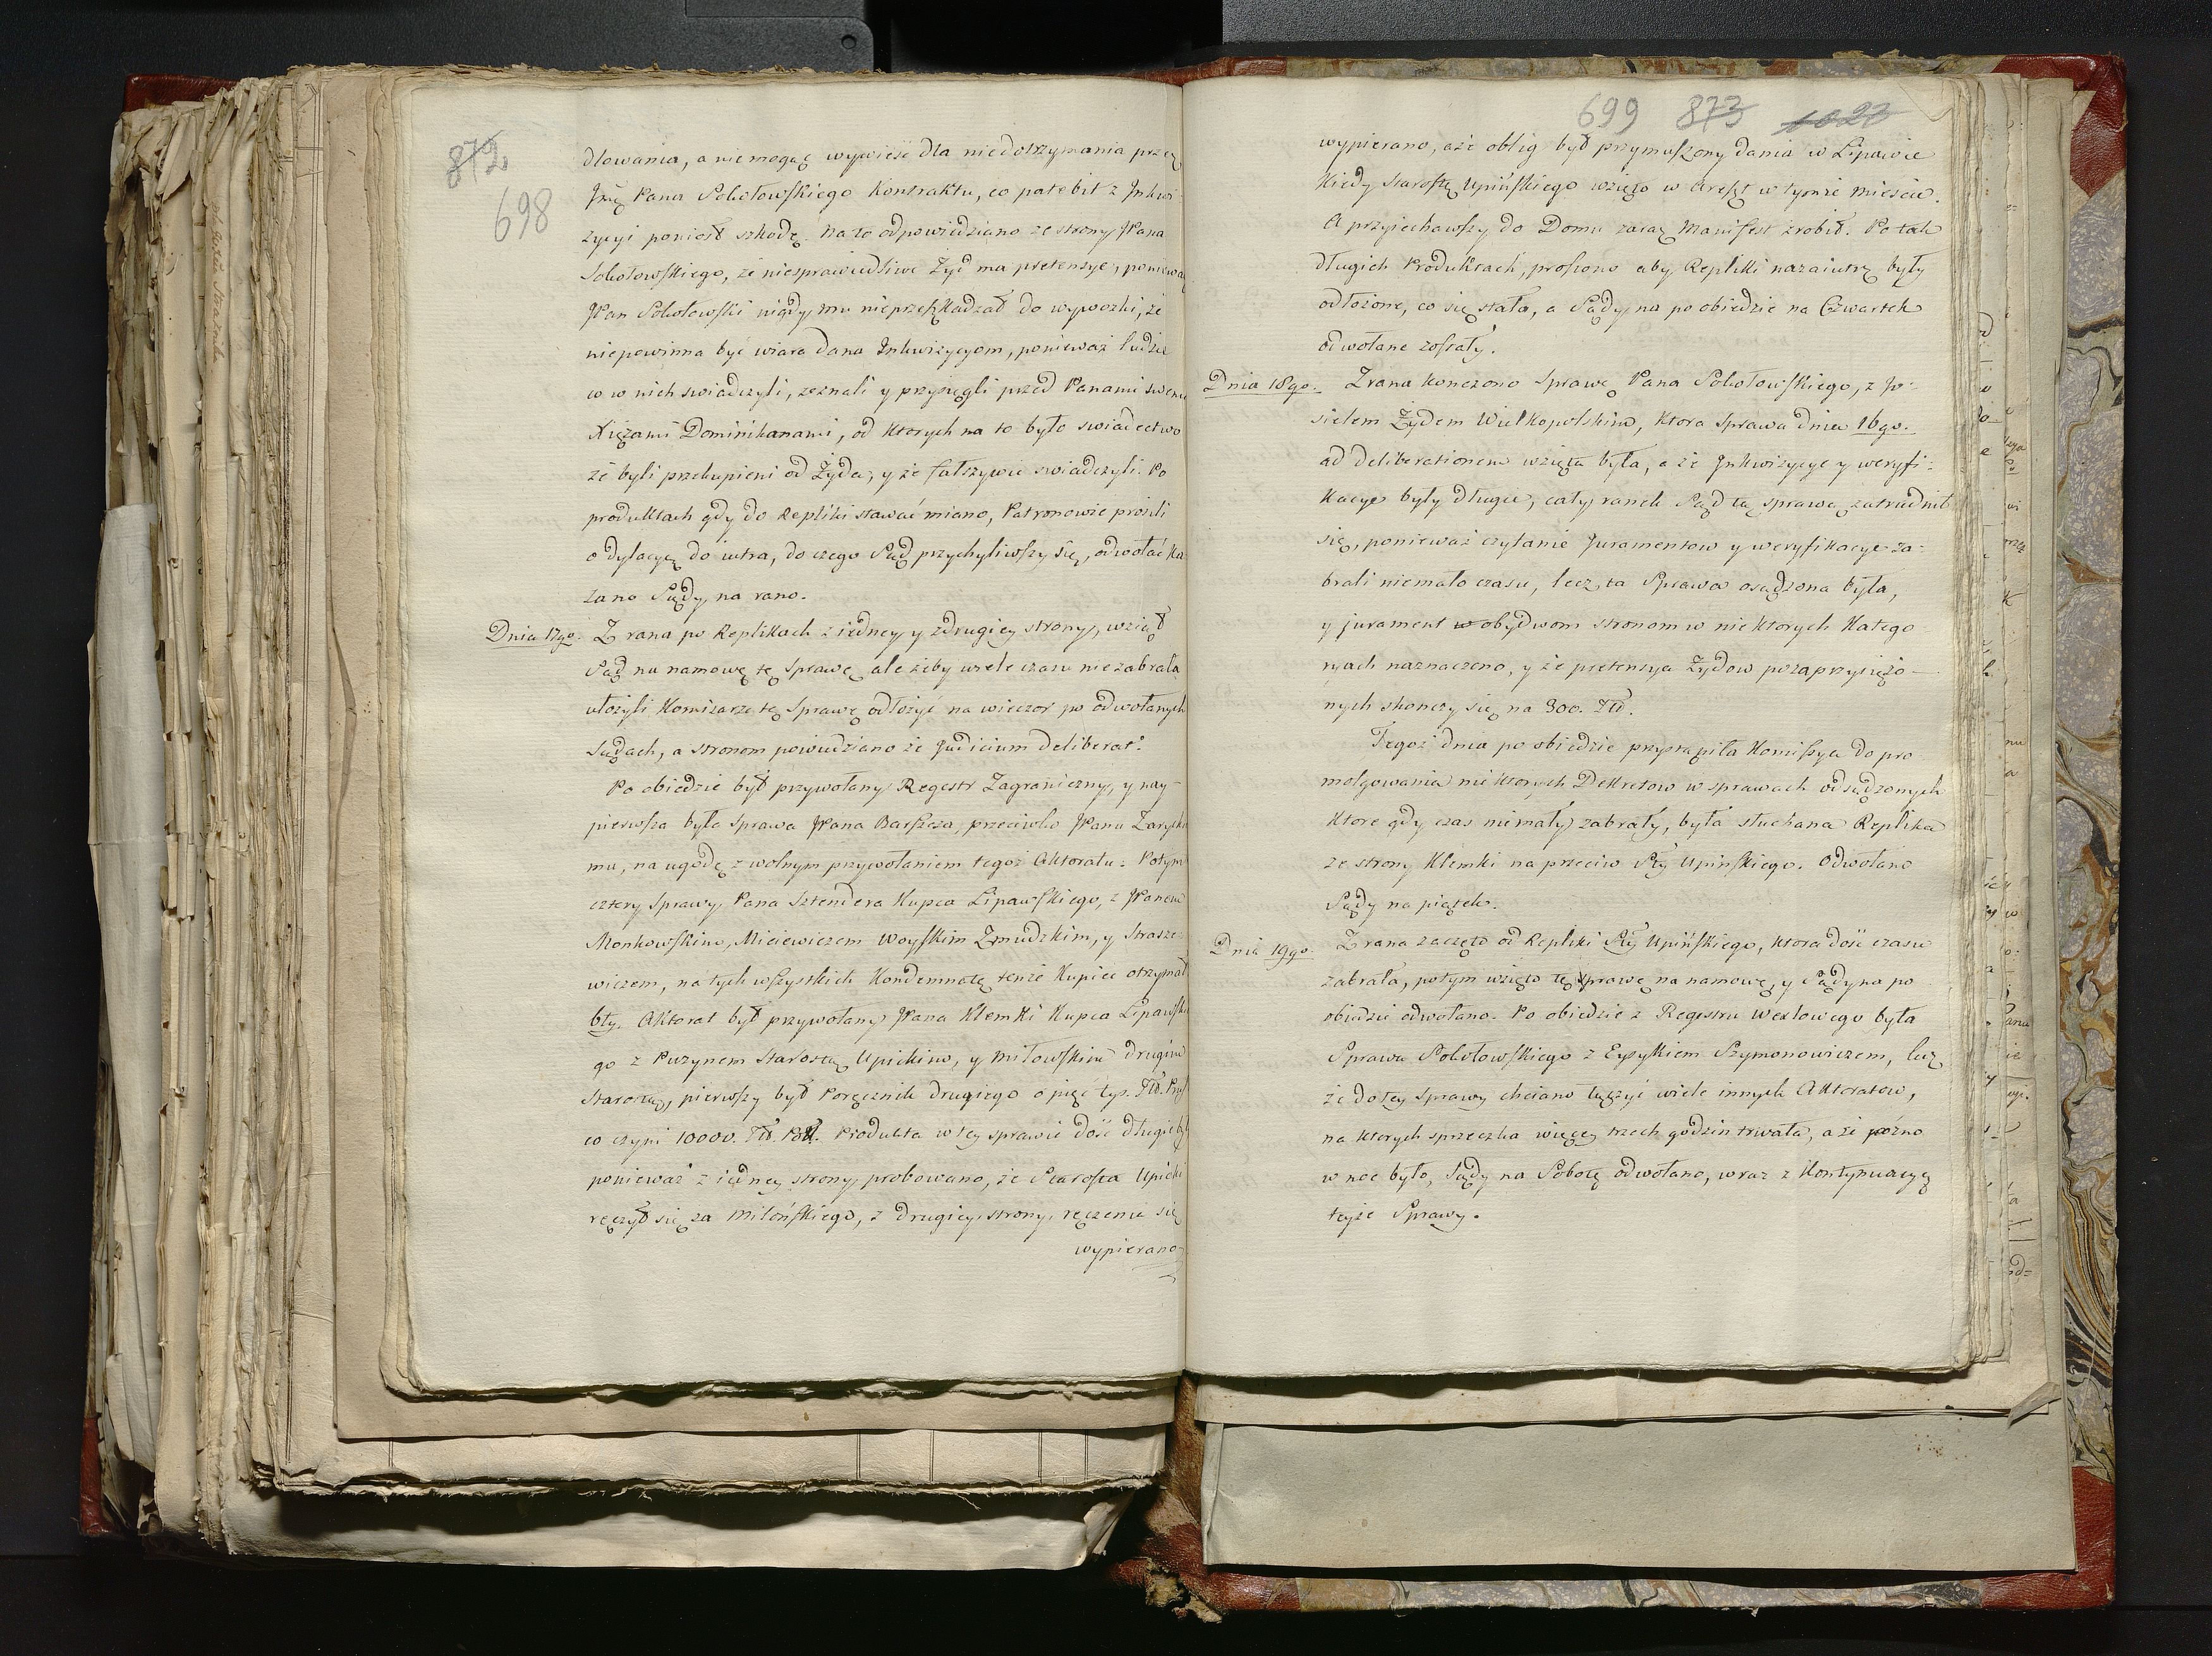 872
698
dlowania, a nie mogąc wywieść dla niedotrzymania przez
Jmę Pana Sobołowskiego Kontraktu, co patebit z Inkwi
zycyi poniosł szkodę. Na to odpowiedziano ze strony JPana
Sobołowskiego, że niesprawiedliwe Żyd ma pretensye, ponieważ
JPan Sobołowski nigdy mu nieprzeszkadzał do wywozki, że
niepowinna być wiara dana Inkwizycyom, ponieważ ludzie
co w nich swiadczyli, zeznali y przysięgli przed Panami swemi
Xięzami Dominikanami, od ktorych na to było swiadectwo
że byli przekupieni od Żyda, y że fałszywie swiadczyli. Po
produktach gdy do Repliki stawać miano, Patronowie prosili
o dylacyę do iutra, do czego Sąd przychyliwszy się, odwołać ka
zano Sądy na rano.
Dnia 17go. Z rana po Replikach z iedney y z drugiey strony, wziął
Sąd na namowę tę sprawę, ale żeby wiele czasu nie zabrała
ułożyli Komisarze tę Sprawę odłożyć na wieczor po odwołanych
sądach, a stronom powiedziano że Judicium deliberat.
Po obiedzie był przywołany Regestr Zagraniczny, y nay-
pierwsza była sprawa JPana Barszcza, przeciwko JPanu
mu, na ugodę z wolnym przywołaniem tegoż Aktoratu. Potym
cztery sprawy, Pana Sztendera Kupca Lipawskiego, z JPanem
Monkowskim, Miciewiczem Woyskim Zmudzkim, y Strasze
wiczem, na tych wszystkich Kondemnatę tenże Kupiec otrzymał
6ty. Aktorat był przywołany JPana Klemki Kupca Lipawskie
go z Puzynem Starostą Upickim, y Miłowskim drugim
Starostą, pierwszy był Poręcznik drugiego o pięć tys.
co czyni 10000. Produkta w tey sprawie dość długie
ponieważ z iedney strony probowano, że Starosta
ręczył się za Milońskiego, z drugiey strony, ręczenia się
wypierano
699 873 1027
wypierano, a że oblig był przymuszony dania w Lipawie
Kiedy Starostę Upińskiego wzięto w areszt w tymże mieście.
A przyiechawszy do Domu zaraz Manifest zrobił. Po tak
długich Produktach, proszono aby Repliki nazaiutrz były
odłożone, co się stało, a Sądy na po obiedzie na Czwartek
odwołane zostały.
Dnia 18go. Zrana konczono Sprawę Pana Sobołowskiego, z Jo-
sielem Żydem Wielkopolskim, ktora Sprawa dnia 16go.
ad deliberationem wzięta była, a że Inkwizycye y weryfi-
kacye były długie, cały ranek Sąd tą sprawą zatrudnił
się, ponieważ czytanie Juramentow y weryfikacye za-
brali niemało czasu, lecz ta Sprawa osądzona była,
y jurament w obydwom stronom w niektorych Katego
ryach naznaczono, y że pretensya Żydow pozaprzysiężo-
nych skonczy się na 300. Tal.
Tegoż dnia po obiedzie przystąpiła Komissya do pro
molgowania niektorych Dekretow w sprawach odsądzonych
Ktore gdy czas niemały zabrały, była słuchana Replika
ze strony Klemki na przeciw Sty Upińskiego. Odwołano
Sądy na piątek.
Dnia 19go. Z rana zaczęto od Repliki Sty Upińskiego, ktora dość czasu
zabrała, potym wzięto tę sprawę na namowę, y Sądy na po
obiedzie odwołano. Po obiedzie z Regestru Wexlowego była
Sprawa Sobołowskiego z Szymonowiczem, lecz
że do tey Sprawy chciano łączyć wiele innych Aktoratow,
na ktorych sprzeczka więcey trzech godzin trwała, a że pozno
w noc było, Sądy na Sobotę odwołano, wraz z Kontynuacyą
teyże Sprawy.